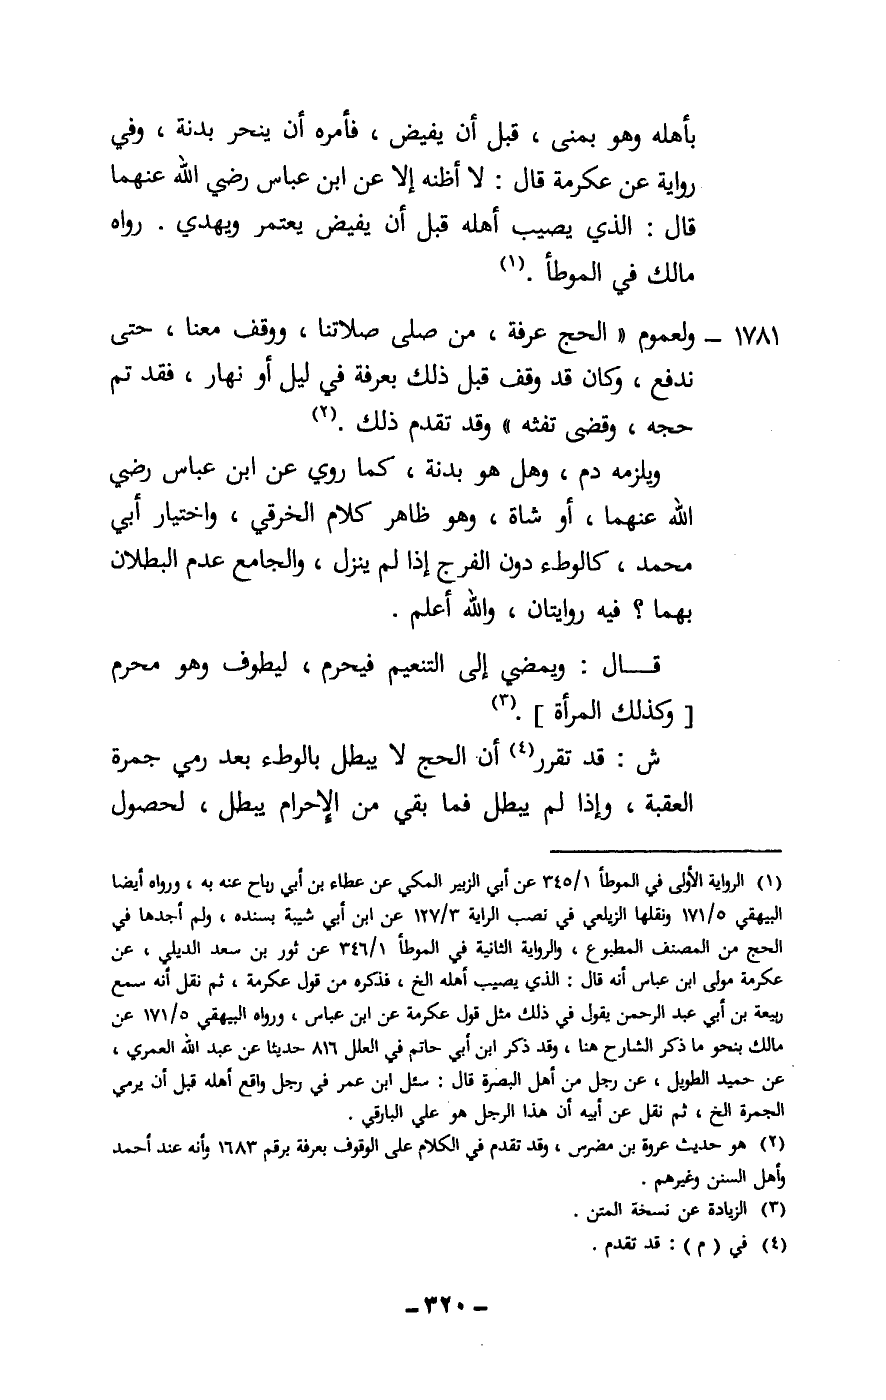 بأهله وهو بمنى ، قبل أن يفيض ، فأمره أن ينحر بدنة ، وفي
رواية عن عكرمة قال : لا أظنه إلا عن ابن عباس رضي الله عنهما
قال : الذي يصيب أهله قبل أن يفيض يعتمر ويهدي . رواه
مالك في الموطأ .(١)
١٧٨١ – ولعموم « الحج عرفة ، من صلى صلاتنا ، ووقف معنا ، حتى
ندفع ، وكان قد وقف قبل ذلك بعرفة في ليل أو نهار ، فقد تم
حجه ، وقضى تفثه » وقد تقدم ذلك .(٢)
ويلزمه دم ، وهل هو بدنة ، كما روي عن ابن عباس رضي
الله عنهما ، أو شاة ، وهو ظاهر كلام الخرقي ، واختيار أبي
محمد ، كالوطء دون الفرج إذا لم ينزل ، والجامع عدم البطلان
بهما ؟ فيه روايتان ، والله أعلم .
قـــال : ويمضي إلى التنعيم فيحرم ، ليطوف وهو محرم
[ وكذلك المرأة ] .(٣)
ش : قد تقرر(٤) أن الحج لا يبطل بالوطء بعد رمي جمرة
العقبة ، وإذا لم يبطل فما بقي من الإحرام يبطل ، لحصول
(١) الرواية الأولى في الموطأ ٣٤٥/١ عن أبي الزبير المكي عن عطاء بن أبي رباح عنه به ، ورواه أيضا
البيهقي ١٧١/٥ ونقلها الزيلعي في نصب الراية ١٢٧/٣ عن ابن أبي شيبة بسنده ، ولم أجدها في
الحج من المصنف المطبوع ، والرواية الثانية في الموطأ ٣٤٦/١ عن ثور بن سعد الديلي ، عن
عكرمة مولى ابن عباس أنه قال : الذي يصيب أهله الخ ، فذكره من قول عكرمة ، ثم نقل أنه سمع
ربيعة بن أبي عبد الرحمن يقول في ذلك مثل قول عكرمة عن ابن عباس ، ورواه البيهقي ١٧١/٥ عن
مالك بنحو ما ذكر الشارح هنا ، وقد ذكر ابن أبي حاتم في العلل ٨١٦ حديثا عن عبد الله العمري ،
عن حميد الطويل ، عن رجل من أهل البصرة قال : سئل ابن عمر في رجل واقع أهله قبل أن يرمي
الجمرة الخ ، ثم نقل عن أبيه أن هذا الرجل هو علي البارقي .
(٢) هو حديث عروة بن مضرس ، وقد تقدم في الكلام على الوقوف بعرفة برقم ١٦٨٣ وأنه عند أحمد
وأهل السنن وغيرهم .
(٣) الزيادة عن نسخة المتن .
(٤) في ( م ) : قد تقدم .
– ٣٢٠ –